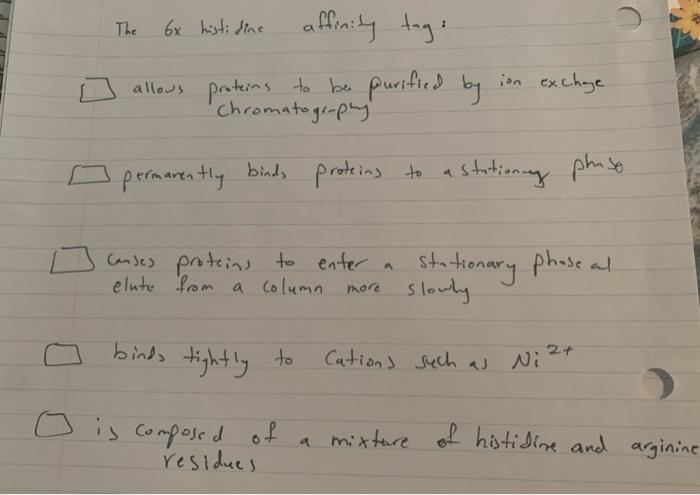 The 6x histidine affinity tag:
allows proteins to be purified by ion exchange
chromatography
permanently binds proteins to a stationary phase
causes proteins to enter a stationary phase and
elute from a column more slowly
binds tightly to cations such as Ni²⁺
is composed of a mixture of histidine and arginine
residues